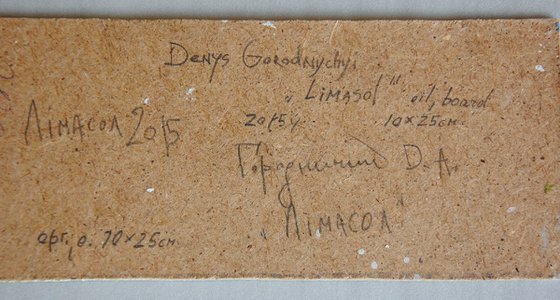 Denys Gorodnychyi
„Limasol" oil, board
2015 10x25см.
Лімасол 2015
Городничий Д. А.
„Лімасол"
орг., о. 10x25см.